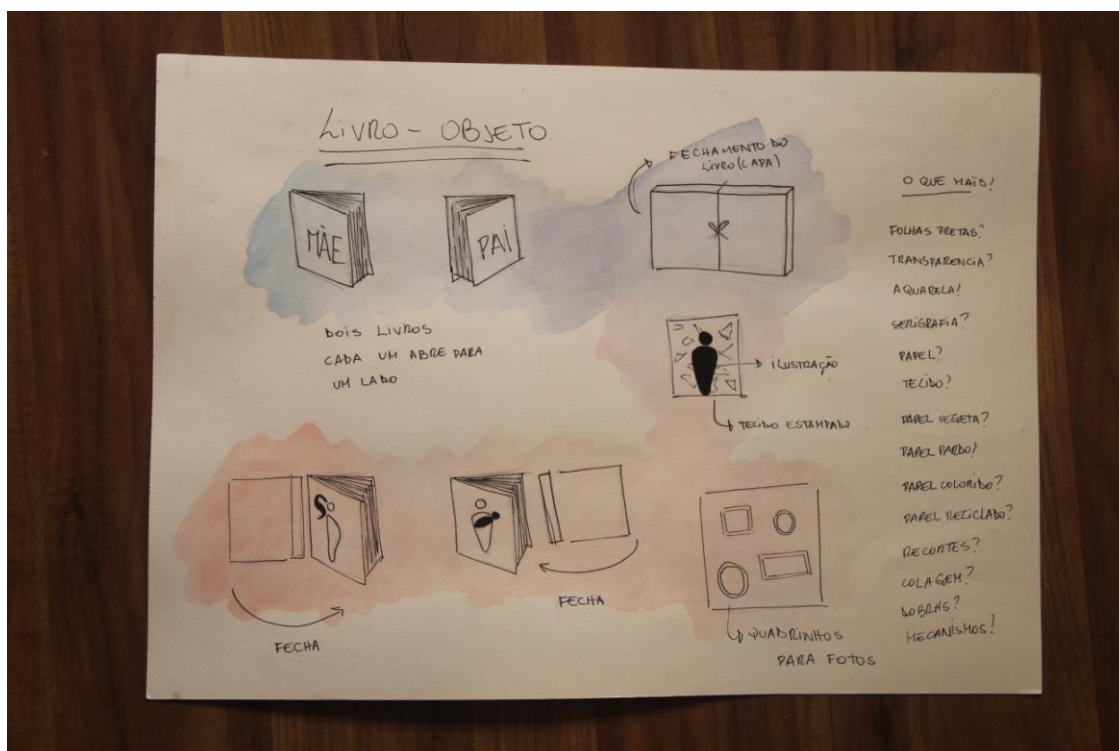 LIVRO - OBJETO
MÃE
PAI
DOIS LIVROS
CADA UM ABRE PARA
UM LADO
FECHAMENTO DO
LIVRO (CAPA)
ILUSTRAÇÃO
TECIDO ESTAMPADO
FECHA
FECHA
QUADRINHOS
PARA FOTOS
O QUE MAIS?
FOLHAS PRETAS?
TRANSPARENCIA?
AQUARELA?
SERIGRAFIA?
PAPEL?
TECIDO?
PAPEL VEGETA?
PAPEL PARDO?
PAPEL COLORIDO?
PAPEL RECICLADO?
RECORTES?
COLAGEM?
DOBRAS?
MECANISMOS?